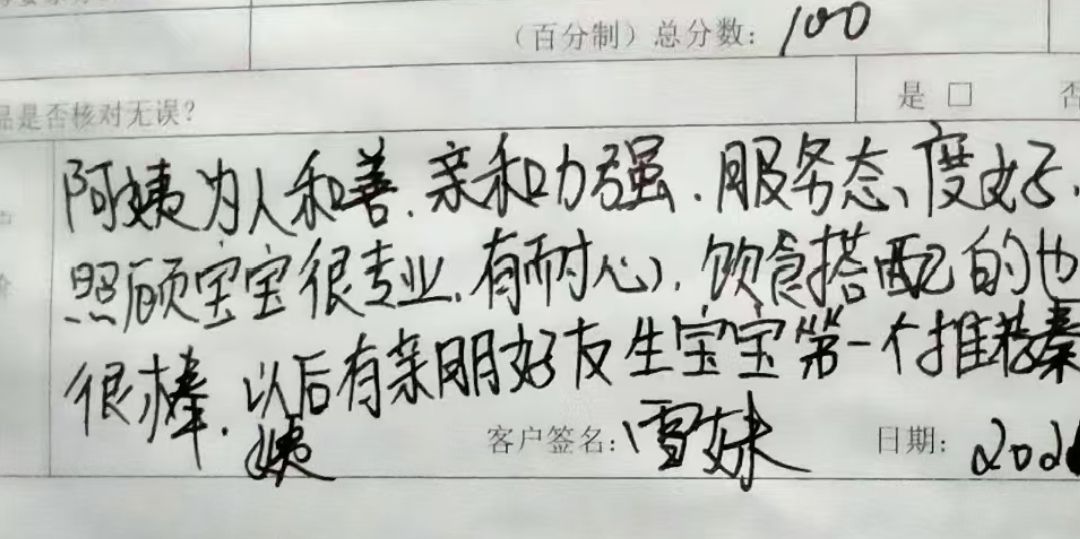 （百分制）总分数：100
品是否核对无误？ 是 □ 否
阿姨为人和善.亲和力强.服务态度好.
照顾宝宝很专业.有耐心).饮食搭配的也
很棒.以后有亲朋好友生宝宝第一个推荐秦
姨
客户签名：雪妹 日期：202